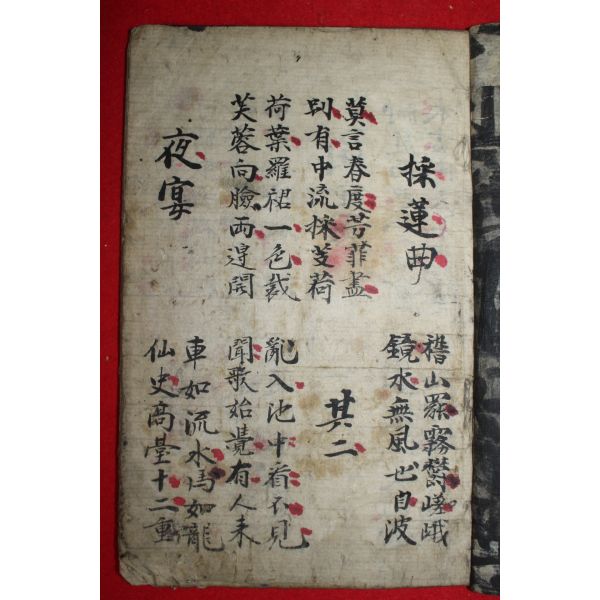 採蓮曲
稽山罷霧鬱嵯峨
鏡水無風也自波
莫言春度芳菲盡
別有中流採芰荷
其二
荷葉羅裙一色裁
芙蓉向臉兩邊開
亂入池中看不見
聞歌始覺有人来
夜宴
車如流水馬如龍
仙史高臺十二重